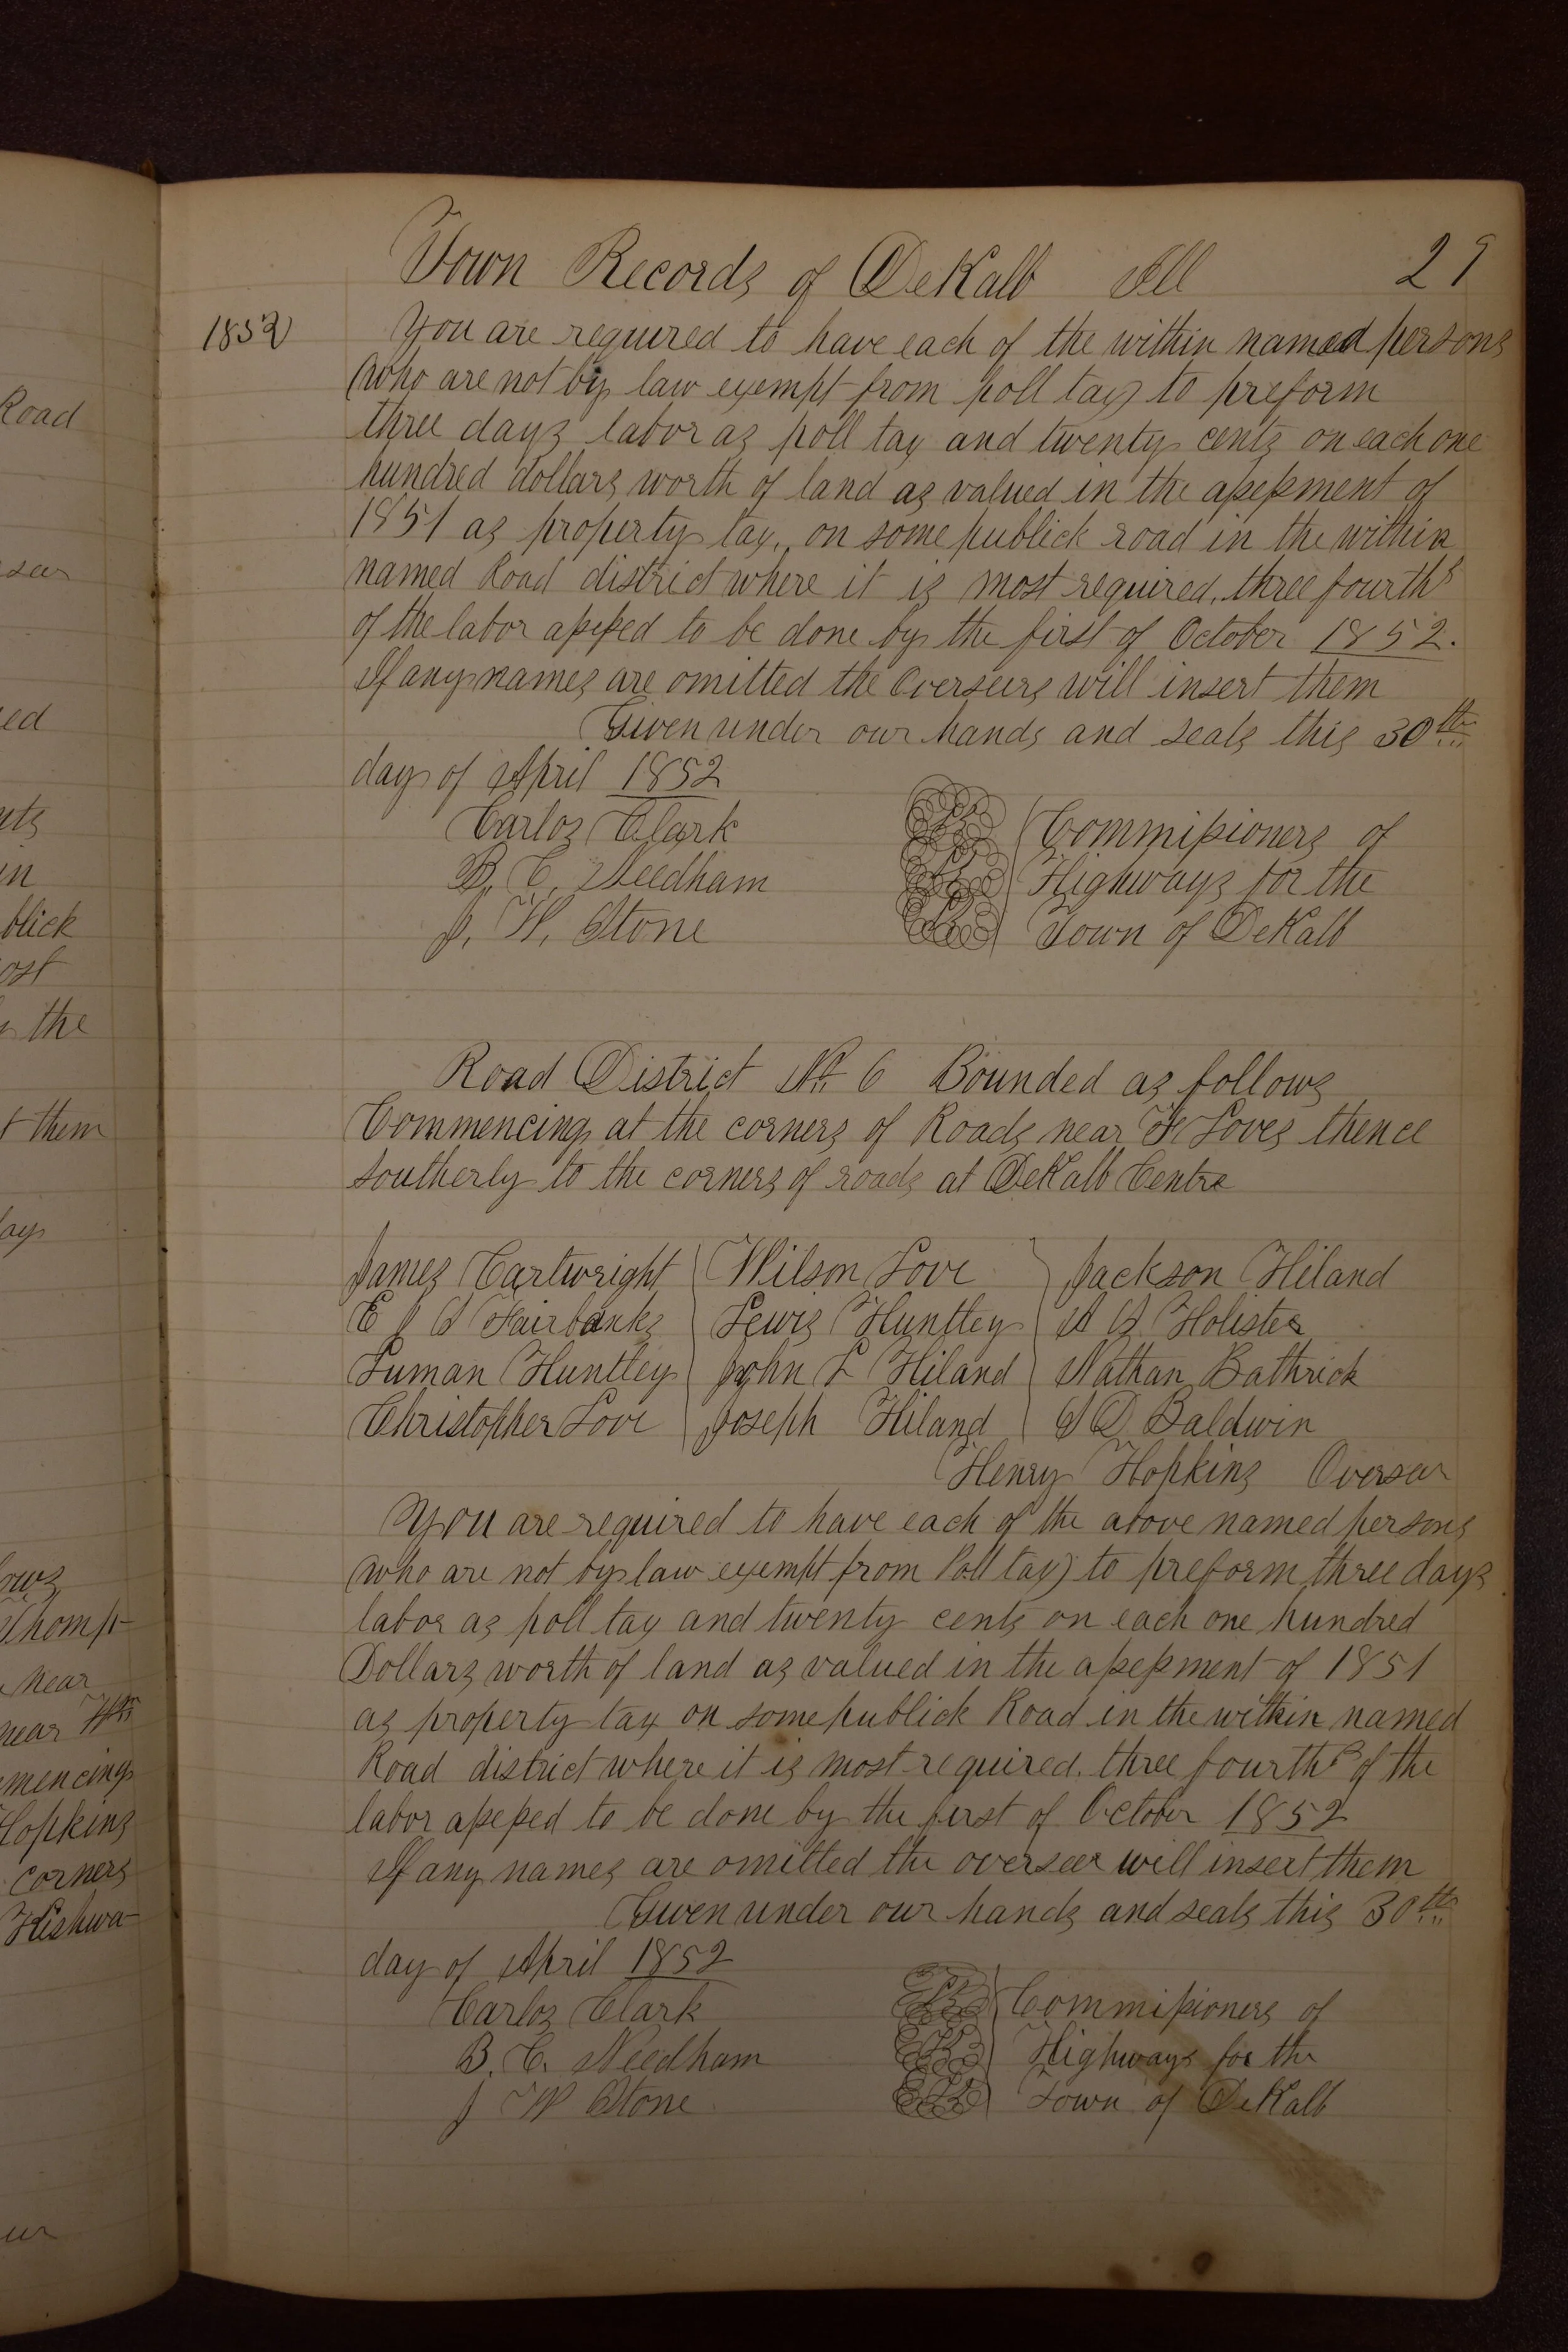 Town Records of DeKalb Ill 29
1852 You are required to have each of the within named persons
(who are not by law exempt from poll tax) to preform
three days labor as poll tax and twenty cents on each one
hundred dollars worth of land as valued in the assessment of
1851 as property tax, on some publick road in the within
named Road district where it is most required. three fourths
of the labor assessed to be done by the first of October 1852.
If any names are omitted the Overseers will insert them
Given under our hands and seals this 30th
day of April 1852
Carlos Clark Commissioners of
B. C. Needham Highways for the
J. W. Stone Town of DeKalb
Road District No 6 Bounded as follows
Commencing at the corners of Roads near Loves thence
southerly to the corners of roads at DeKalb Centre
James Cartwright Wilson Love Jackson Hiland
E J Fairbanks Lewis Huntley Holister
Luman Huntley John L Hiland Nathan Bathrick
Christopher Love Joseph Hiland S D Baldwin
Henry Hopkins Overseer
You are required to have each of the above named persons
(who are not by law exempt from Poll tax) to preform three days
labor as poll tax and twenty cents on each one hundred
Dollars worth of land as valued in the assessment of 1851
as property tax on some publick Road in the within named
Road district where it is most required. three fourths of the
labor assessed to be done by the first of October 1852
If any names are omitted the overseer will insert them
Given under our hands and seals this 30th
day of April 1852
Carlos Clark Commissioners of
B. C. Needham Highways for the
J W Stone Town of DeKalb
Road
ed
in
blick
ost
the
t them
Thomp-
near
near
mencing
Hopkins
corners
Hishwa-